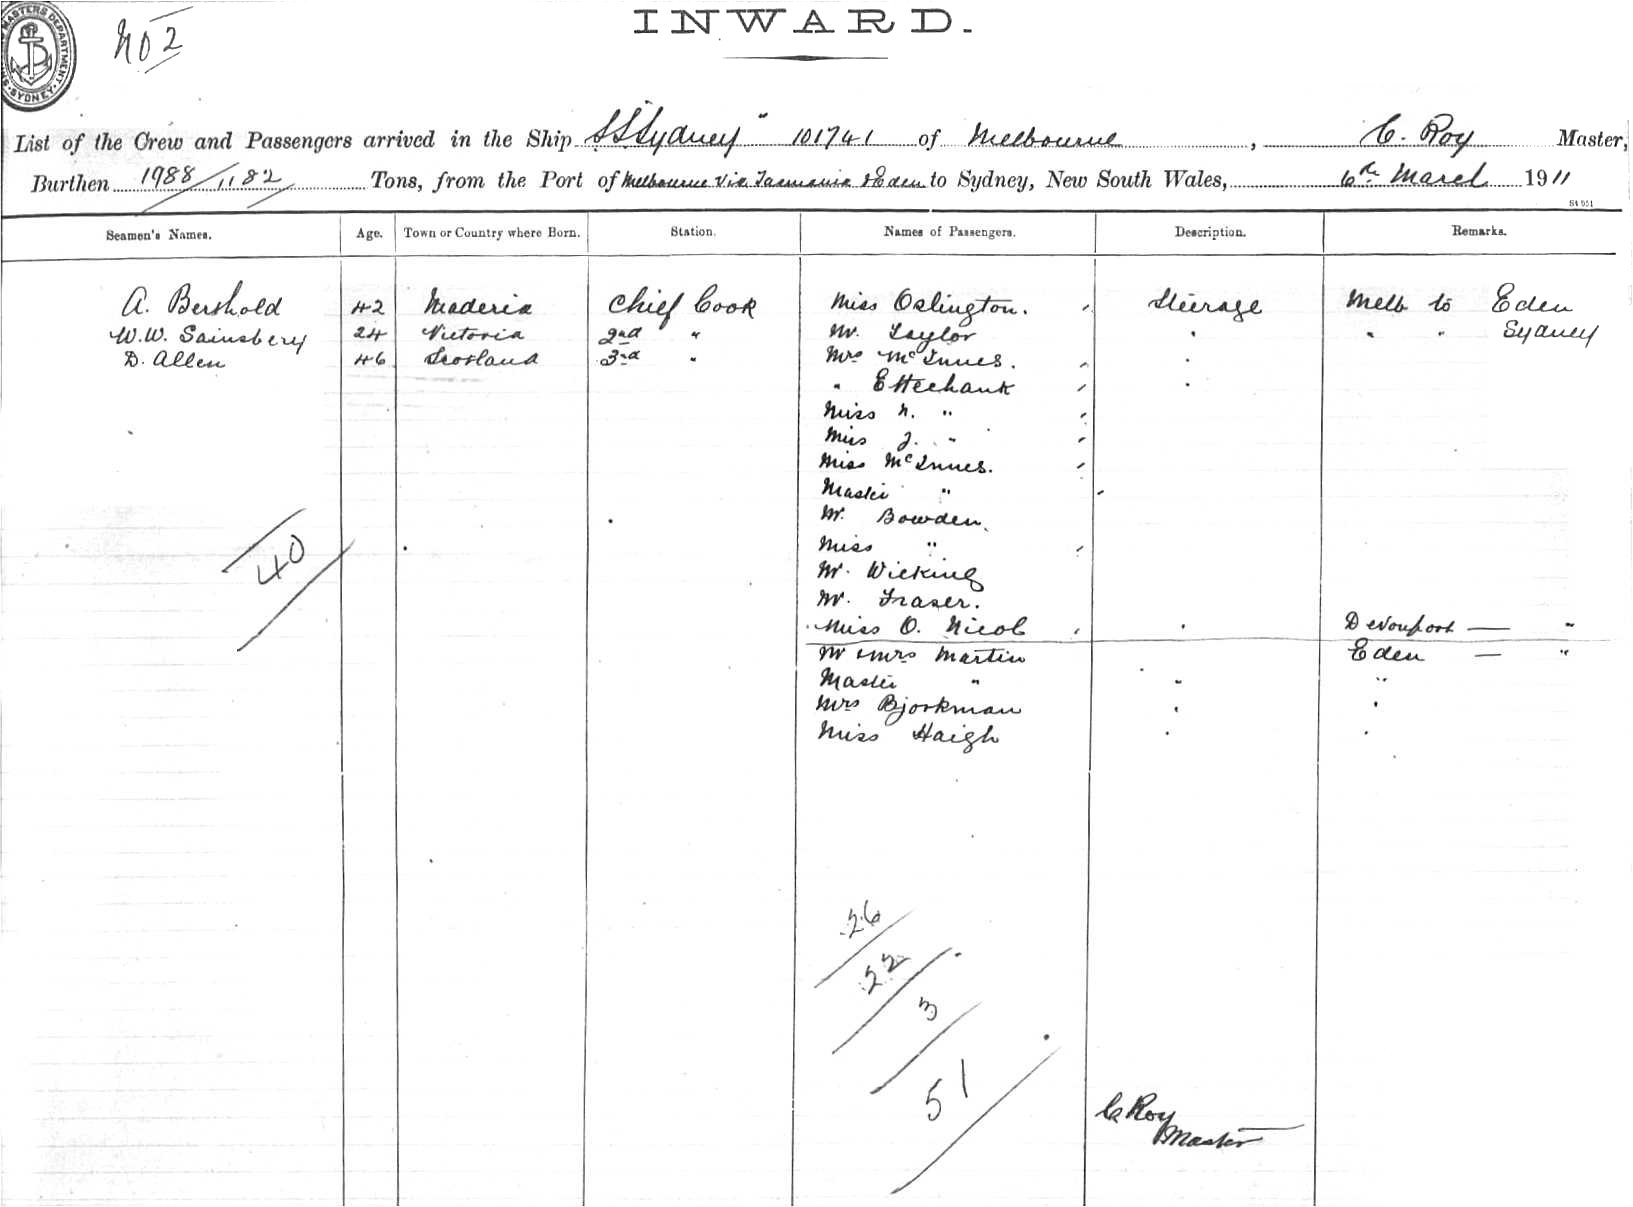 MASTERS DEPARTMENT SYDNEY
No 2
INWARD.
List of the Crew and Passengers arrived in the Ship S.S. Sydney" 101741 of Melbourne, C. Roy Master,
Burthen 1988/1182 Tons, from the Port of Melbourne Via Tasmania & Eden to Sydney, New South Wales, 6th March 1911
Seamen's Names. Age. Town or Country where Born. Station. Names of Passengers. Description. Remarks.
A. Berthold 42 Maderia Chief Cook Miss Oslington. Steerage Melb to Eden
W.W. Sainsbery 24 Victoria 2nd " Mr. Taylor " " " Sydney
D. Allen 46 Scotland 3rd " Mrs McInnes. "
" Etteehank "
Miss N. "
Miss J. "
Miss McInnes.
Master "
Mr. Bowden.
Miss "
Mr. Wicking
Mr. Fraser.
Miss O. Nicol " Devonport — "
Mr & Mrs Martin Eden — "
Master " " "
Mrs Bjorkman " "
Miss Haigh " "
40
26
22
3
51
C Roy
Master